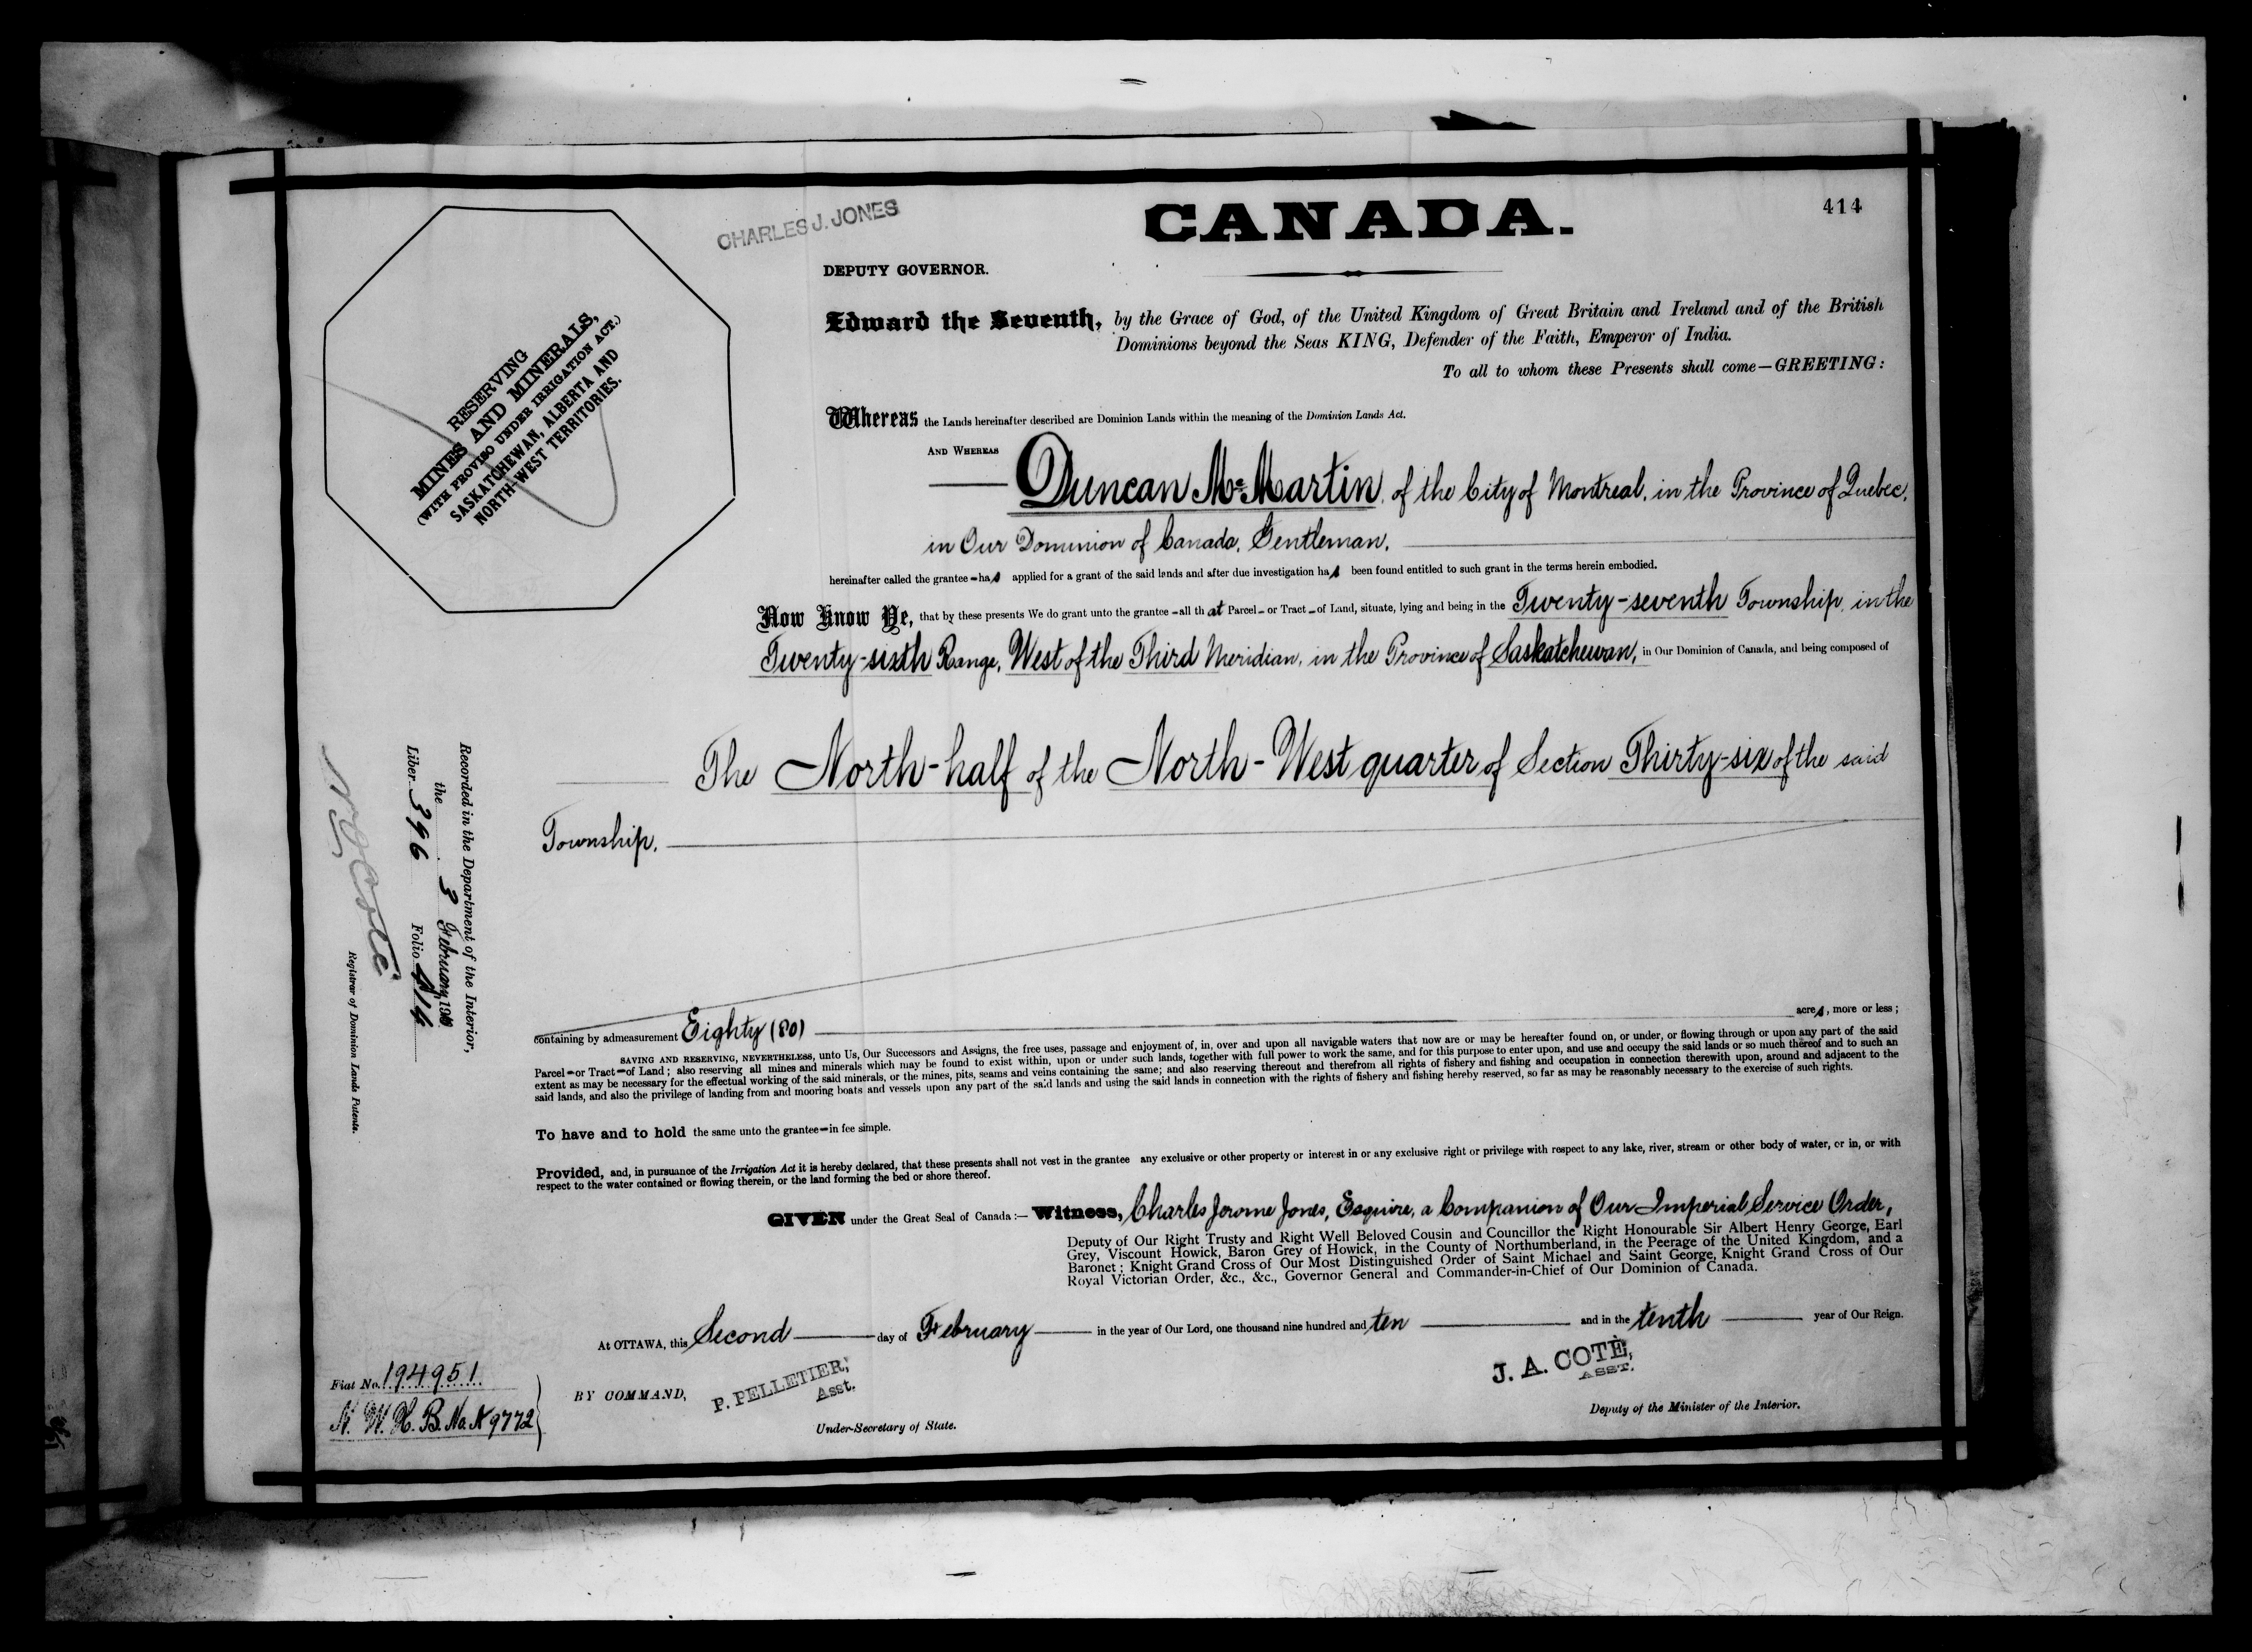 414
CHARLES J. JONES
CANADA.
DEPUTY GOVERNOR.
RESERVING
MINES AND MINERALS,
(WITH PROVISO UNDER IRRIGATION ACT.)
SASKATCHEWAN, ALBERTA AND
NORTH-WEST TERRITORIES.
Edward the Seventh, by the Grace of God, of the United Kingdom of Great Britain and Ireland and of the British
Dominions beyond the Seas KING, Defender of the Faith, Emperor of India.
To all to whom these Presents shall come—GREETING:
Whereas the Lands hereinafter described are Dominion Lands within the meaning of the Dominion Lands Act.
AND WHEREAS Duncan McMartin, of the City of Montreal, in the Province of Quebec,
in Our Dominion of Canada, Gentleman,
hereinafter called the grantee – has applied for a grant of the said lands and after due investigation has been found entitled to such grant in the terms herein embodied.
Now Know Ye, that by these presents We do grant unto the grantee – all that Parcel – or Tract – of Land, situate, lying and being in the Twenty-seventh Township, in the
Twenty-sixth Range, West of the Third Meridian, in the Province of Saskatchewan, in Our Dominion of Canada, and being composed of
The North-half of the North-West quarter of Section Thirty-six of the said
Township.
Recorded in the Department of the Interior,
the 3 February, 1910
Liber 396 Folio 414
Registrar of Dominion Lands Patents.
containing by admeasurement Eighty (80) acres, more or less;
SAVING AND RESERVING, NEVERTHELESS, unto Us, Our Successors and Assigns, the free uses, passage and enjoyment of, in, over and upon all navigable waters that now are or may be hereafter found on, or under, or flowing through or upon any part of the said
Parcel – or Tract – of Land; also reserving all mines and minerals which may be found to exist within, upon or under such lands, together with full power to work the same, and for this purpose to enter upon, and use and occupy the said lands or so much thereof and to such an
extent as may be necessary for the effectual working of the said minerals, or the mines, pits, seams and veins containing the same; and also reserving thereout and therefrom all rights of fishery and fishing and occupation in connection therewith upon, around and adjacent to the
said lands, and also the privilege of landing from and mooring boats and vessels upon any part of the said lands and using the said lands in connection with the rights of fishery and fishing hereby reserved, so far as may be reasonably necessary to the exercise of such rights.
To have and to hold the same unto the grantee – in fee simple.
Provided, and, in pursuance of the Irrigation Act it is hereby declared, that these presents shall not vest in the grantee any exclusive or other property or interest in or any exclusive right or privilege with respect to any lake, river, stream or other body of water, or in, or with
respect to the water contained or flowing therein, or the land forming the bed or shore thereof.
GIVEN under the Great Seal of Canada:— Witness, Charles Jerome Jones, Esquire, a Companion of Our Imperial Service Order,
Deputy of Our Right Trusty and Right Well Beloved Cousin and Councillor the Right Honourable Sir Albert Henry George, Earl
Grey, Viscount Howick, Baron Grey of Howick, in the County of Northumberland, in the Peerage of the United Kingdom, and a
Baronet; Knight Grand Cross of Our Most Distinguished Order of Saint Michael and Saint George, Knight Grand Cross of Our
Royal Victorian Order, &c., &c., Governor General and Commander-in-Chief of Our Dominion of Canada.
At OTTAWA, this Second day of February in the year of Our Lord, one thousand nine hundred and ten and in the tenth year of Our Reign.
Fiat No. 194951
N. W. H. B. No. A 9772
BY COMMAND,
P. PELLETIER,
Asst.
Under-Secretary of State.
J. A. COTÈ,
ASST.
Deputy of the Minister of the Interior.